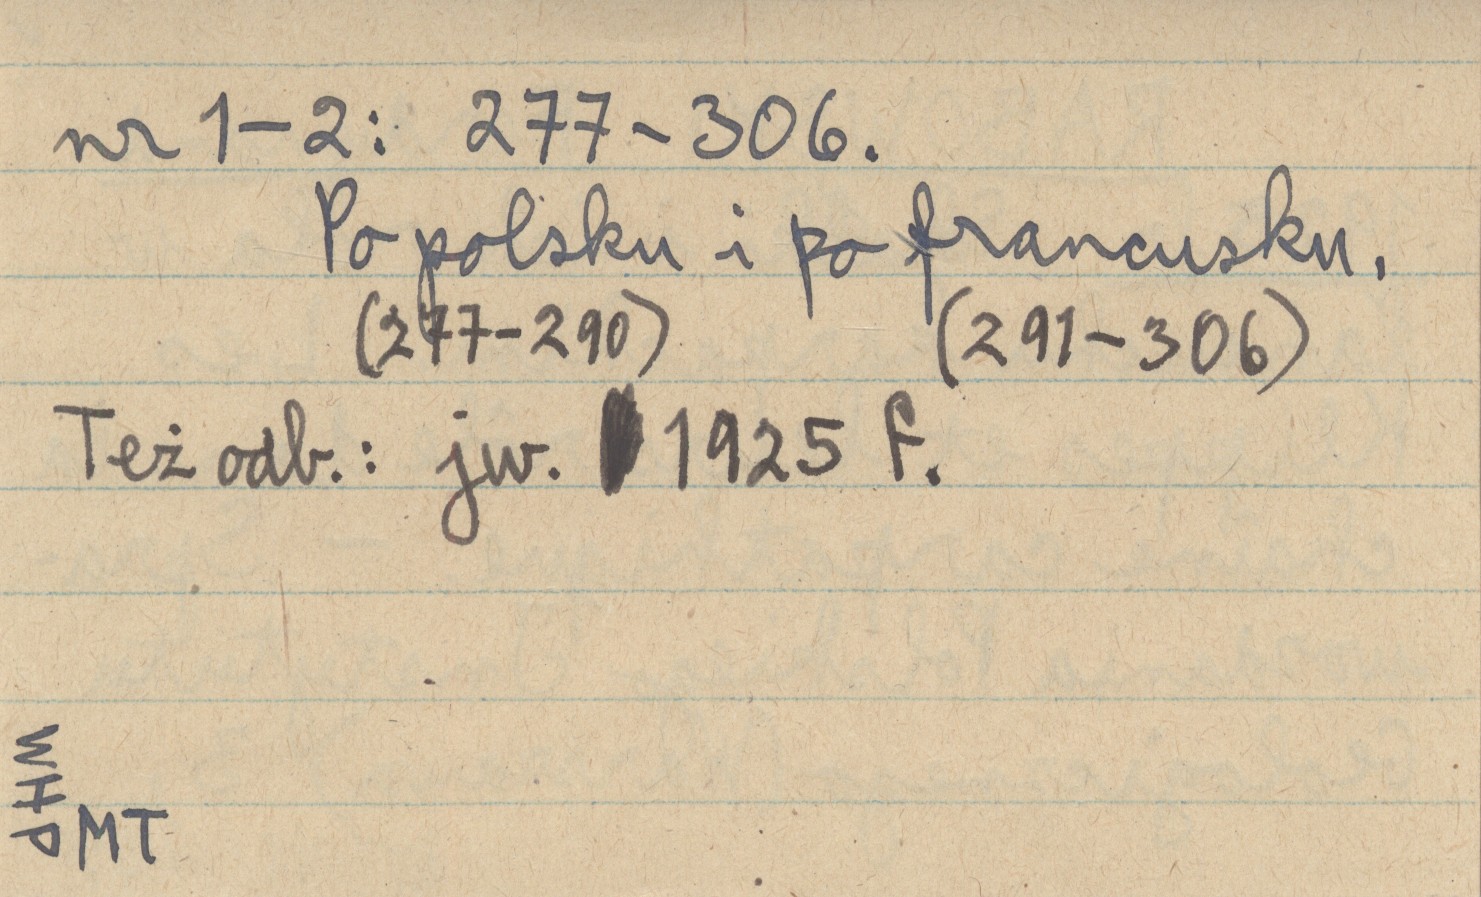 nr 1-2: 277-306.
Po polsku i po francusku.
(277-290) (291-306)
Też odb.: jw. 1925 f.
WHP
MT